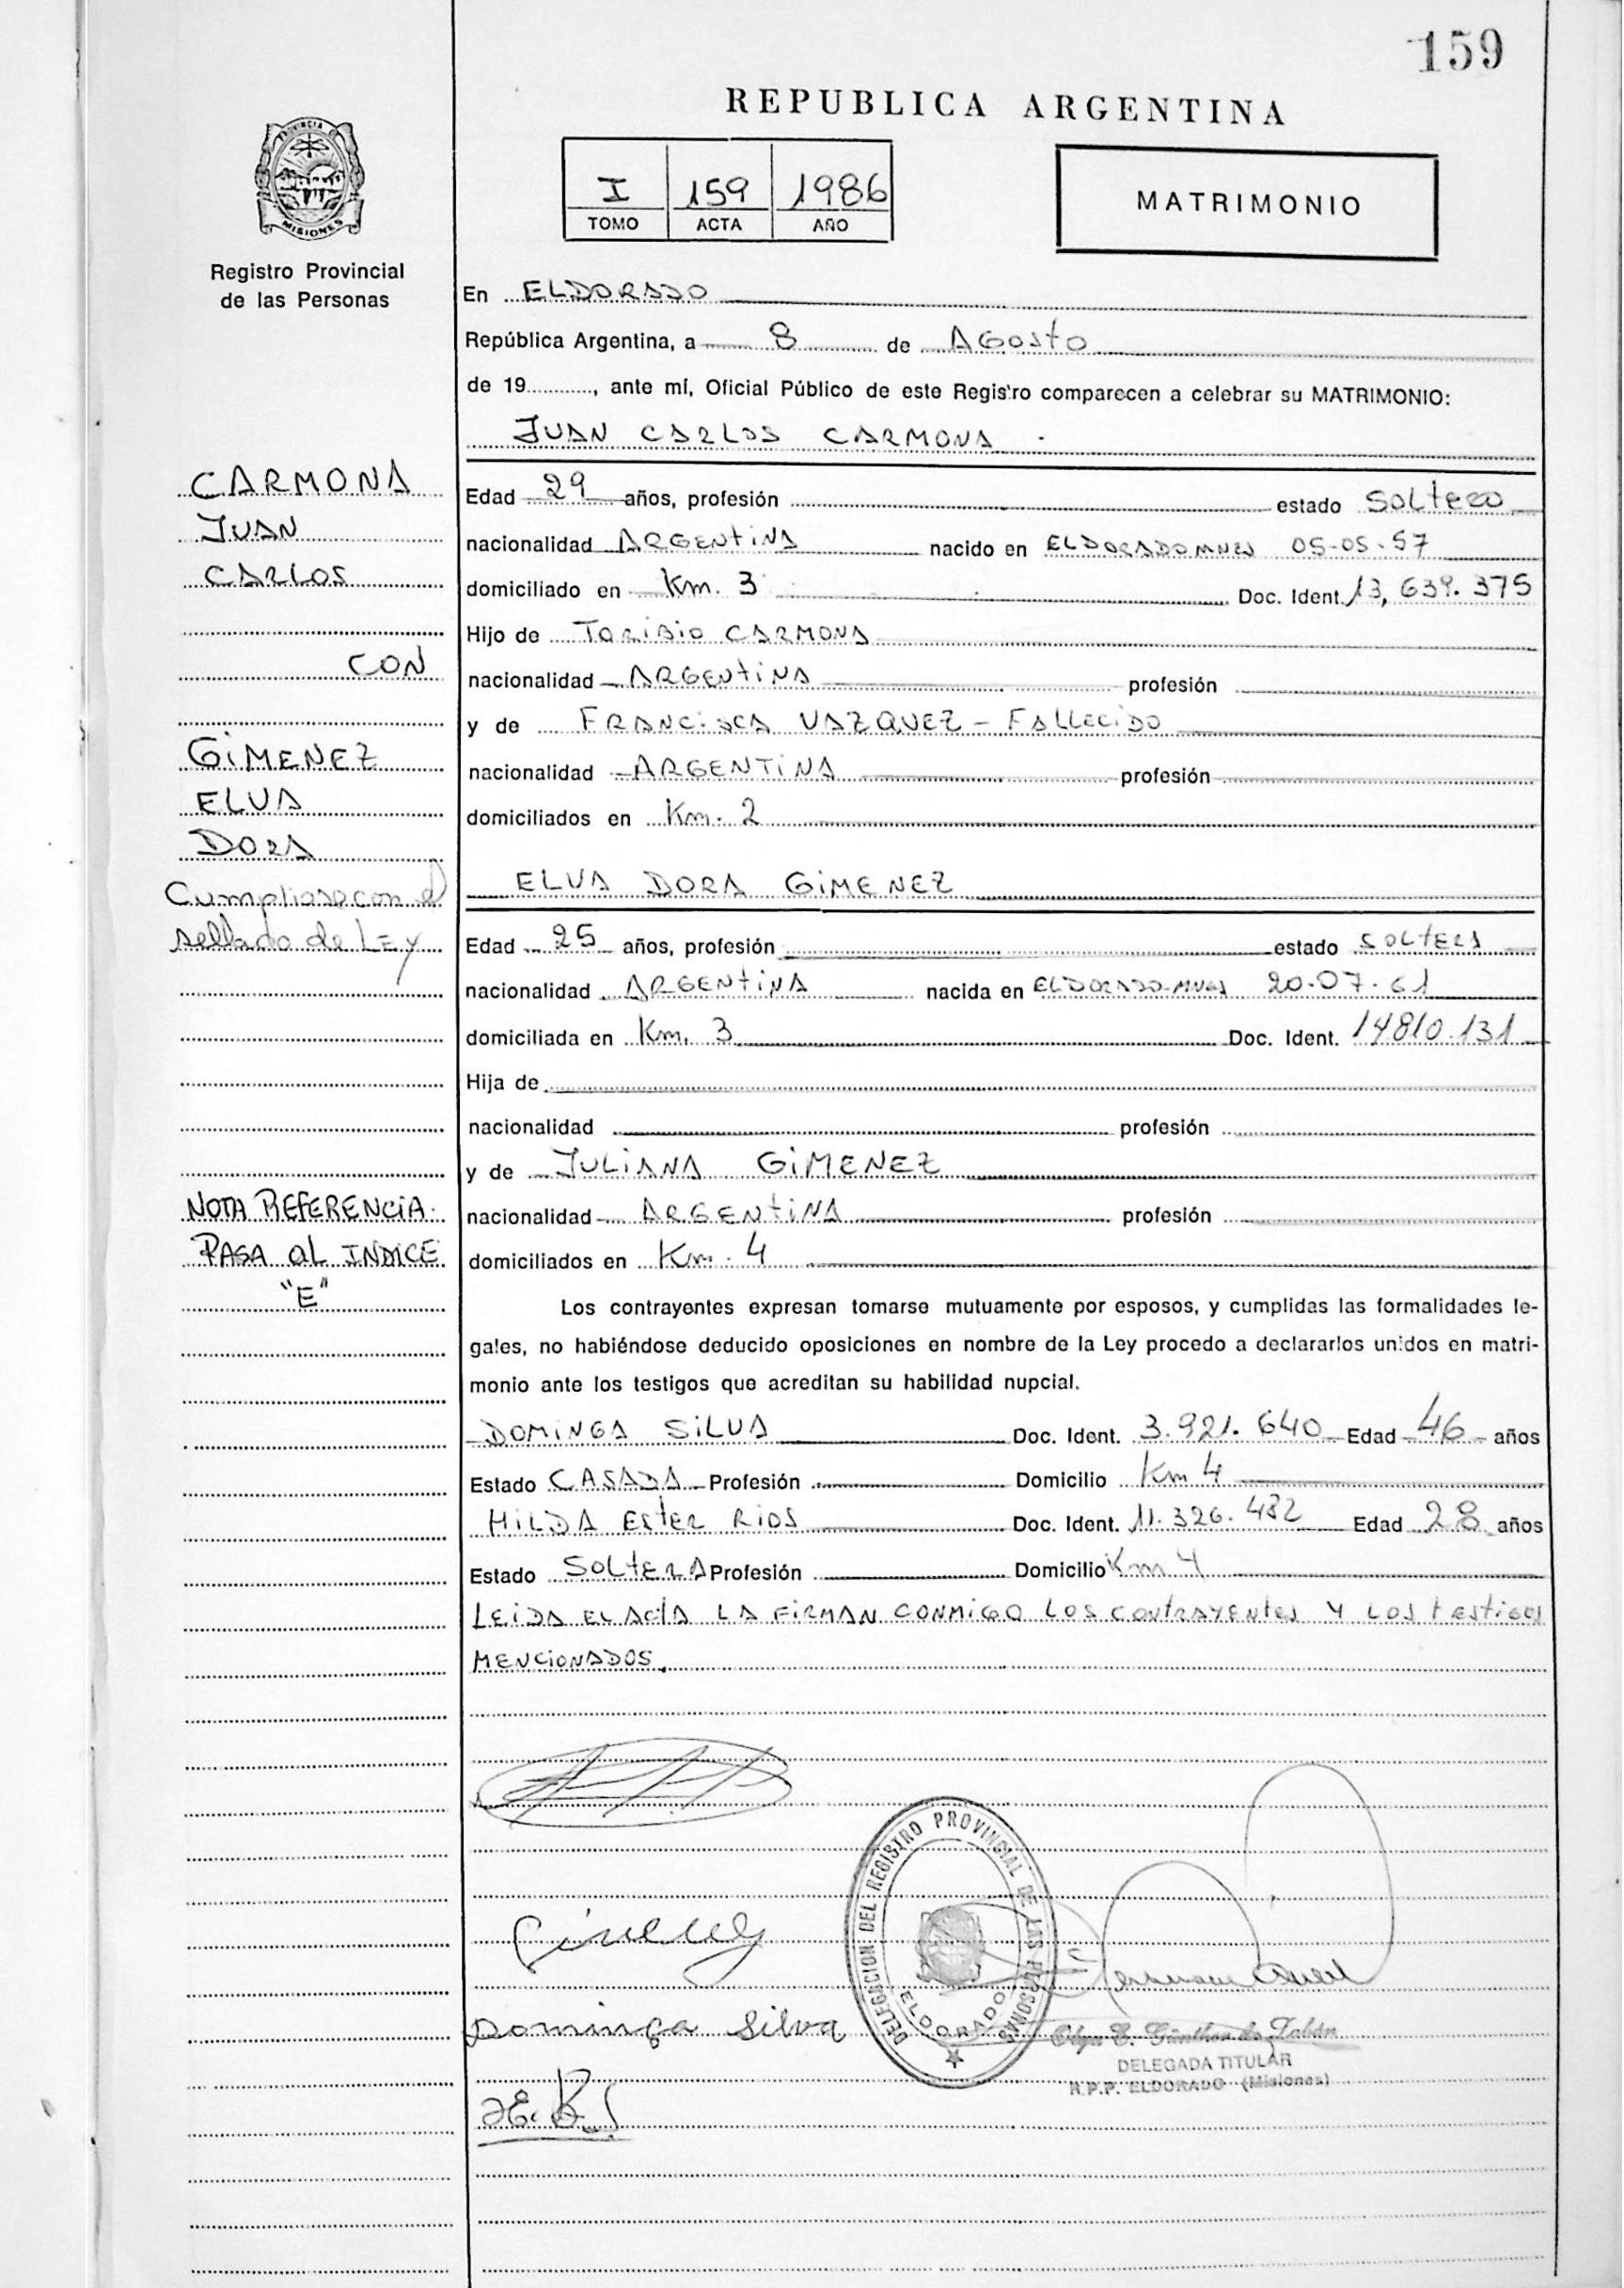 159
REPUBLICA ARGENTINA
I 159 1986
TOMO ACTA AÑO
MATRIMONIO
PROVINCIA
MISIONES
Registro Provincial
de las Personas
En ELDORADO
República Argentina, a 8 de AGOSTO
de 19..........., ante mí, Oficial Público de este Registro comparecen a celebrar su MATRIMONIO:
JUAN CARLOS CARMONA
CARMONA
JUAN
CARLOS
CON
GIMENEZ
ELVA
DORA
Cumpliose con el
sellado de LEY
NOTA REFERENCIA:
PASA al INDICE
"E"
Edad 29 años, profesión estado SOLTERO
nacionalidad ARGENTINA nacido en ELDORADO MNES 05-05-57
domiciliado en Km. 3 Doc. Ident. 13,639.375
Hijo de TORIBIO CARMONA
nacionalidad ARGENTINA profesión
y de FRANCISCA VAZQUEZ - FALLECIDO
nacionalidad ARGENTINA profesión
domiciliados en Km. 2
ELVA DORA GIMENEZ
Edad 25 años, profesión estado SOLTERA
nacionalidad ARGENTINA nacida en ELDORADO-MNES 20-07-61
domiciliada en Km. 3 Doc. Ident. 14810.131
Hija de
nacionalidad profesión
y de JULIANA GIMENEZ
nacionalidad ARGENTINA profesión
domiciliados en Km. 4
Los contrayentes expresan tomarse mutuamente por esposos, y cumplidas las formalidades le-
gales, no habiéndose deducido oposiciones en nombre de la Ley procedo a declararlos unidos en matri-
monio ante los testigos que acreditan su habilidad nupcial.
DOMINGA SILVA Doc. Ident. 3.921.640 Edad 46 años
Estado CASADA Profesión Domicilio Km 4
HILDA ESTER RIOS Doc. Ident. 11.326.482 Edad 28 años
Estado SOLTERA Profesión Domicilio Km 4
LEIDA EL ACTA LA FIRMAN CONMIGO LOS CONTRAYENTES Y LOS TESTIGOS
MENCIONADOS.
DELEGACION DEL REGISTRO PROVINCIAL DE LAS PERSONAS
ELDORADO
Dominga Silva
DELEGADA TITULAR
R.P.P. ELDORADO (Misiones)